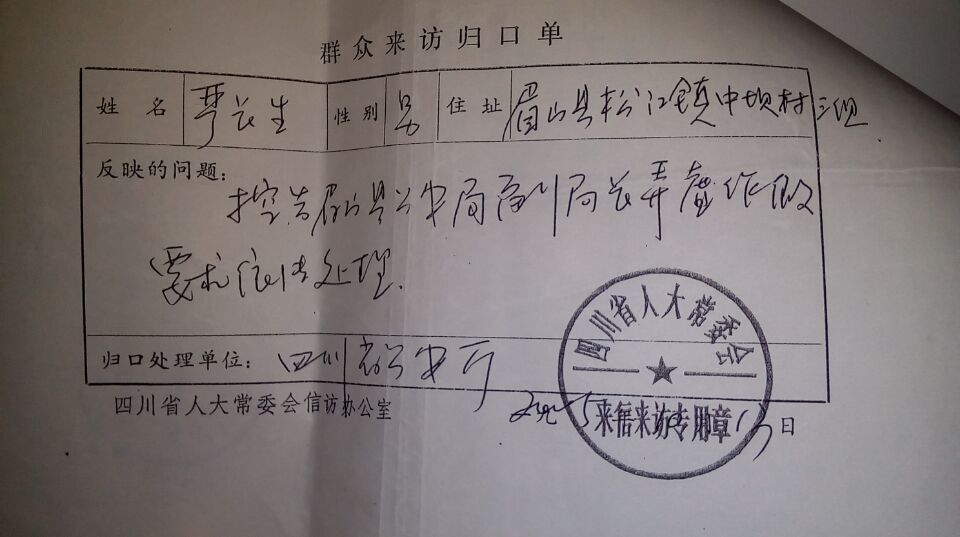 群众来访归口单
姓名 长生 性别 男 住址 眉山县松江镇中坝村三组
反映的问题：
控告眉山县公安局副局长弄虚作假
要求依法处理.
归口处理单位： 四川省公安厅
四川省人大常委会信访办公室
日
四川省人大常委会
来信来访专用章